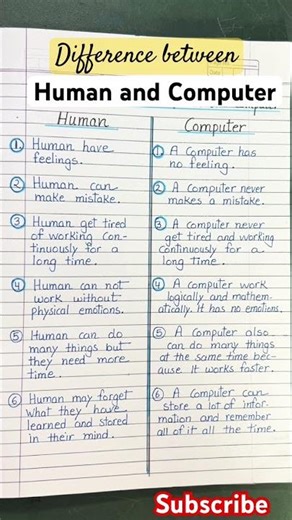 Difference between
Human and Computer
Computer
Human
Computer
① Human have
feelings.
② Human can
make mistake.
③ Human get tired
of working con-
tinuously for a
long time.
④ Human can not
work without
physical emotions.
⑤ Human can do
many things but
they need more
time.
⑥ Human may forget
what they have
learned and stored
in their mind.
① A Computer has
no feeling.
② A Computer never
makes a mistake.
③ A computer never
get tired and working
continuously for a
long time.
④ A computer work
logically and mathem-
atically. It has no emotions.
⑤ A Computer also
can do many things
at the same time bec-
ause It works faster.
⑥ A Computer can
store a lot of infor-
mation and remember
all of it all the time.
Subscribe